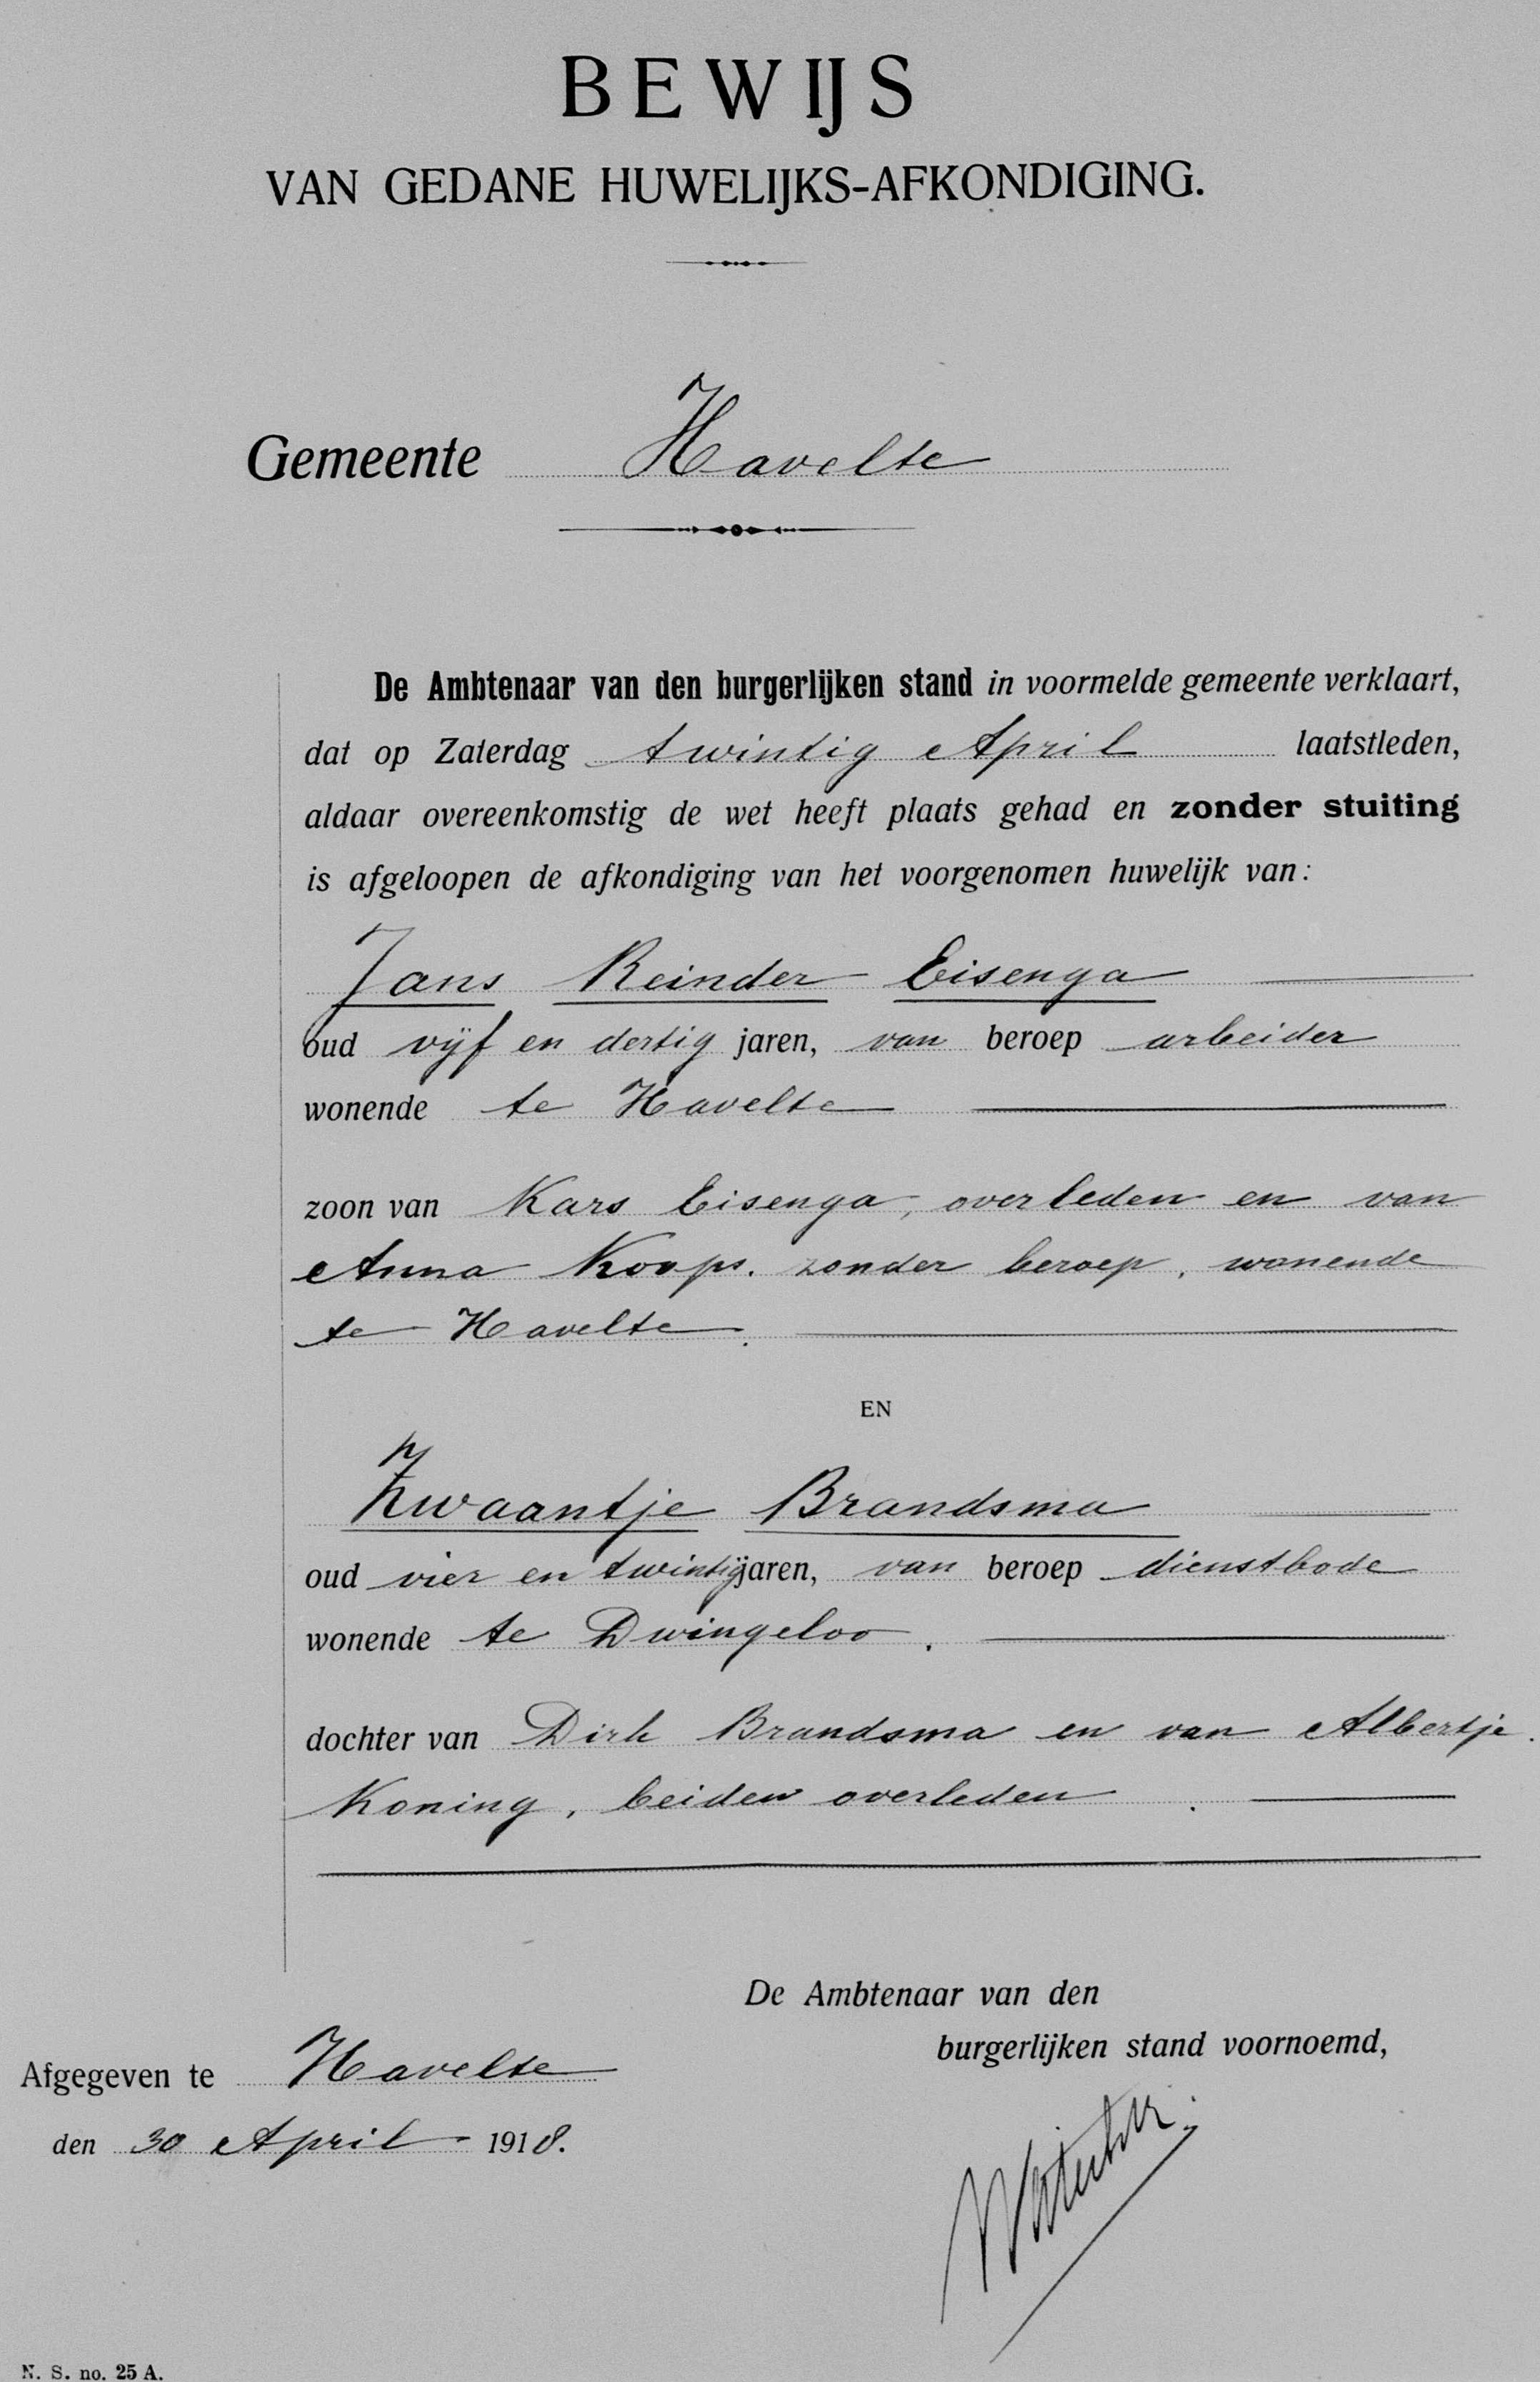 BEWIJS
VAN GEDANE HUWELIJKS-AFKONDIGING.
Gemeente Havelte
De Ambtenaar van den burgerlijken stand in voormelde gemeente verklaart,
dat op Zaterdag twintig April laatstleden,
aldaar overeenkomstig de wet heeft plaats gehad en zonder stuiting
is afgeloopen de afkondiging van het voorgenomen huwelijk van:
Jans Reinder Eisenga
oud vijf en dertig jaren, van beroep arbeider
wonende te Havelte
zoon van Kars Eisenga, overleden en van
Anna Koops. zonder beroep, wonende
te Havelte.
EN
Zwaantje Brandsma
oud vier en twintig jaren, van beroep dienstbode
wonende te Dwingeloo.
dochter van Dirk Brandsma en van Albertje
Koning, beiden overleden.
De Ambtenaar van den
burgerlijken stand voornoemd,
Afgegeven te Havelte
den 30 April 1918.
N. S. no. 25 A.